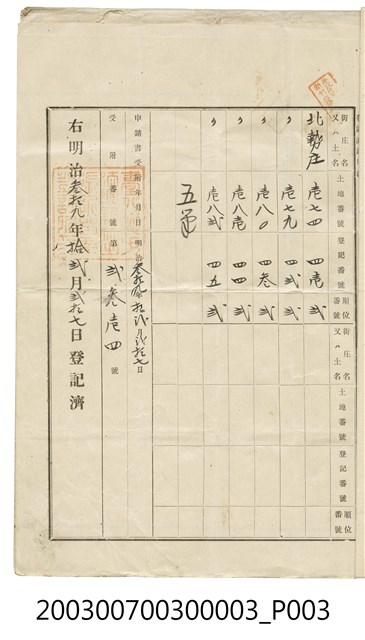 街庄名又ハ土名 土地番號 登記番號 順位番號 街庄名又ハ土名 土地番號 登記番號 順位番號
北勢庄 壱七四 四壱 弐
〃 壱七九 四弐 弐
〃 壱八〇 四叁 弐
〃 壱八壱 四四 弐
〃 壱八弐 四五 弐
五筆
申請書受附年月日 明治叁拾九年拾弐月弐拾七日
受附番號 第弐叁壱四號
右明治叁拾九年拾弐月弐拾七日登記濟
200300700300003_P003